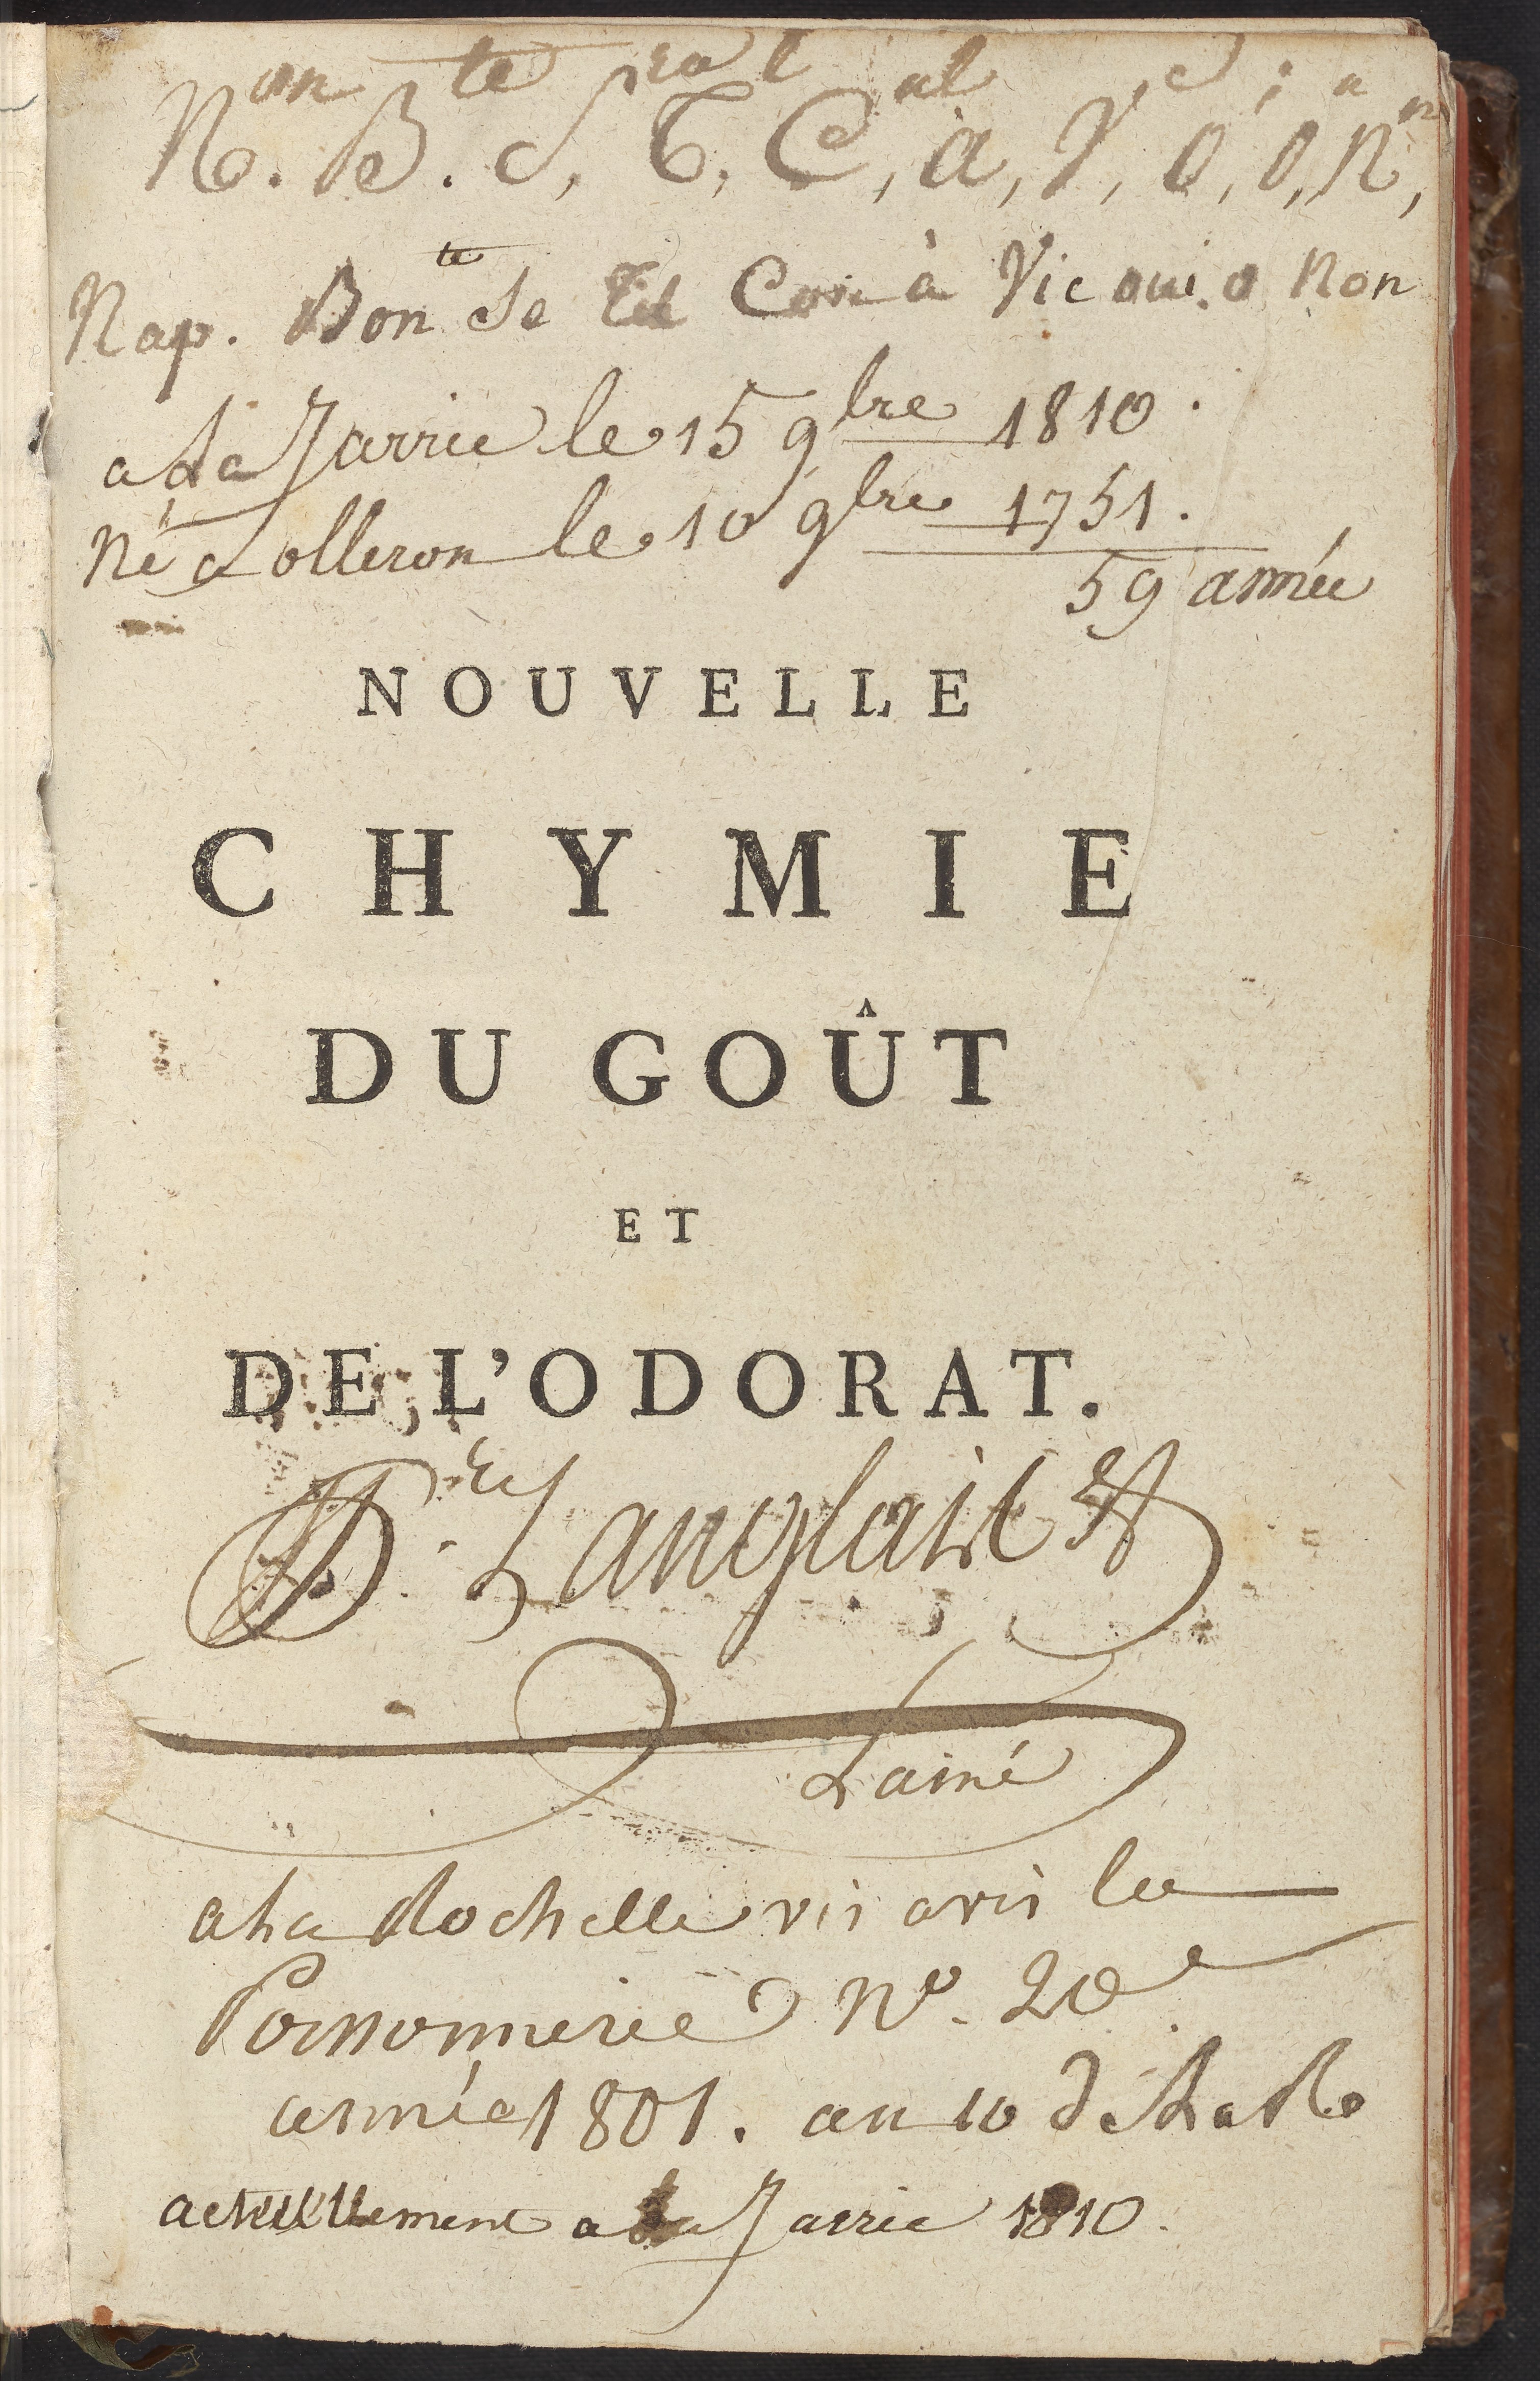 N. B. S, T, C, a, V, O, O, N,
Nap. Bonte Se Con à Vie oui o Non
a La Jarrie le 15 9bre 1810.
Né a olleron le 10 9bre 1751.
59 année
NOUVELLE
CHYMIE
DU GOÛT
ET
DE L'ODORAT.
Langlais
Lainé
a La Rochelle vis avis la
Poissonnerie No. 20
année 1801. an 10 de La Re
actuellement a La Jarrie 1810.